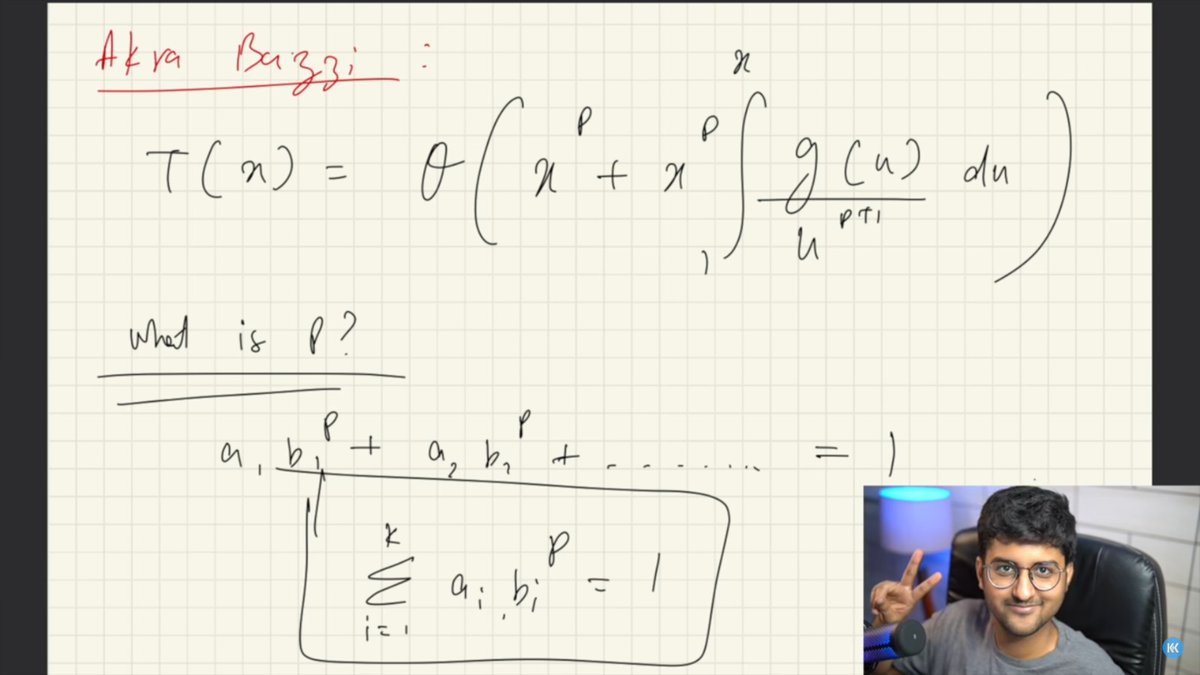 Akra Bazzi :
T(x) = θ( x^p + x^p ∫_1^x g(u)/u^(p+1) du )
What is p?
a₁ b₁^p + a₂ b₂^p + ........ = 1
∑_{i=1}^{k} aᵢ bᵢ^p = 1